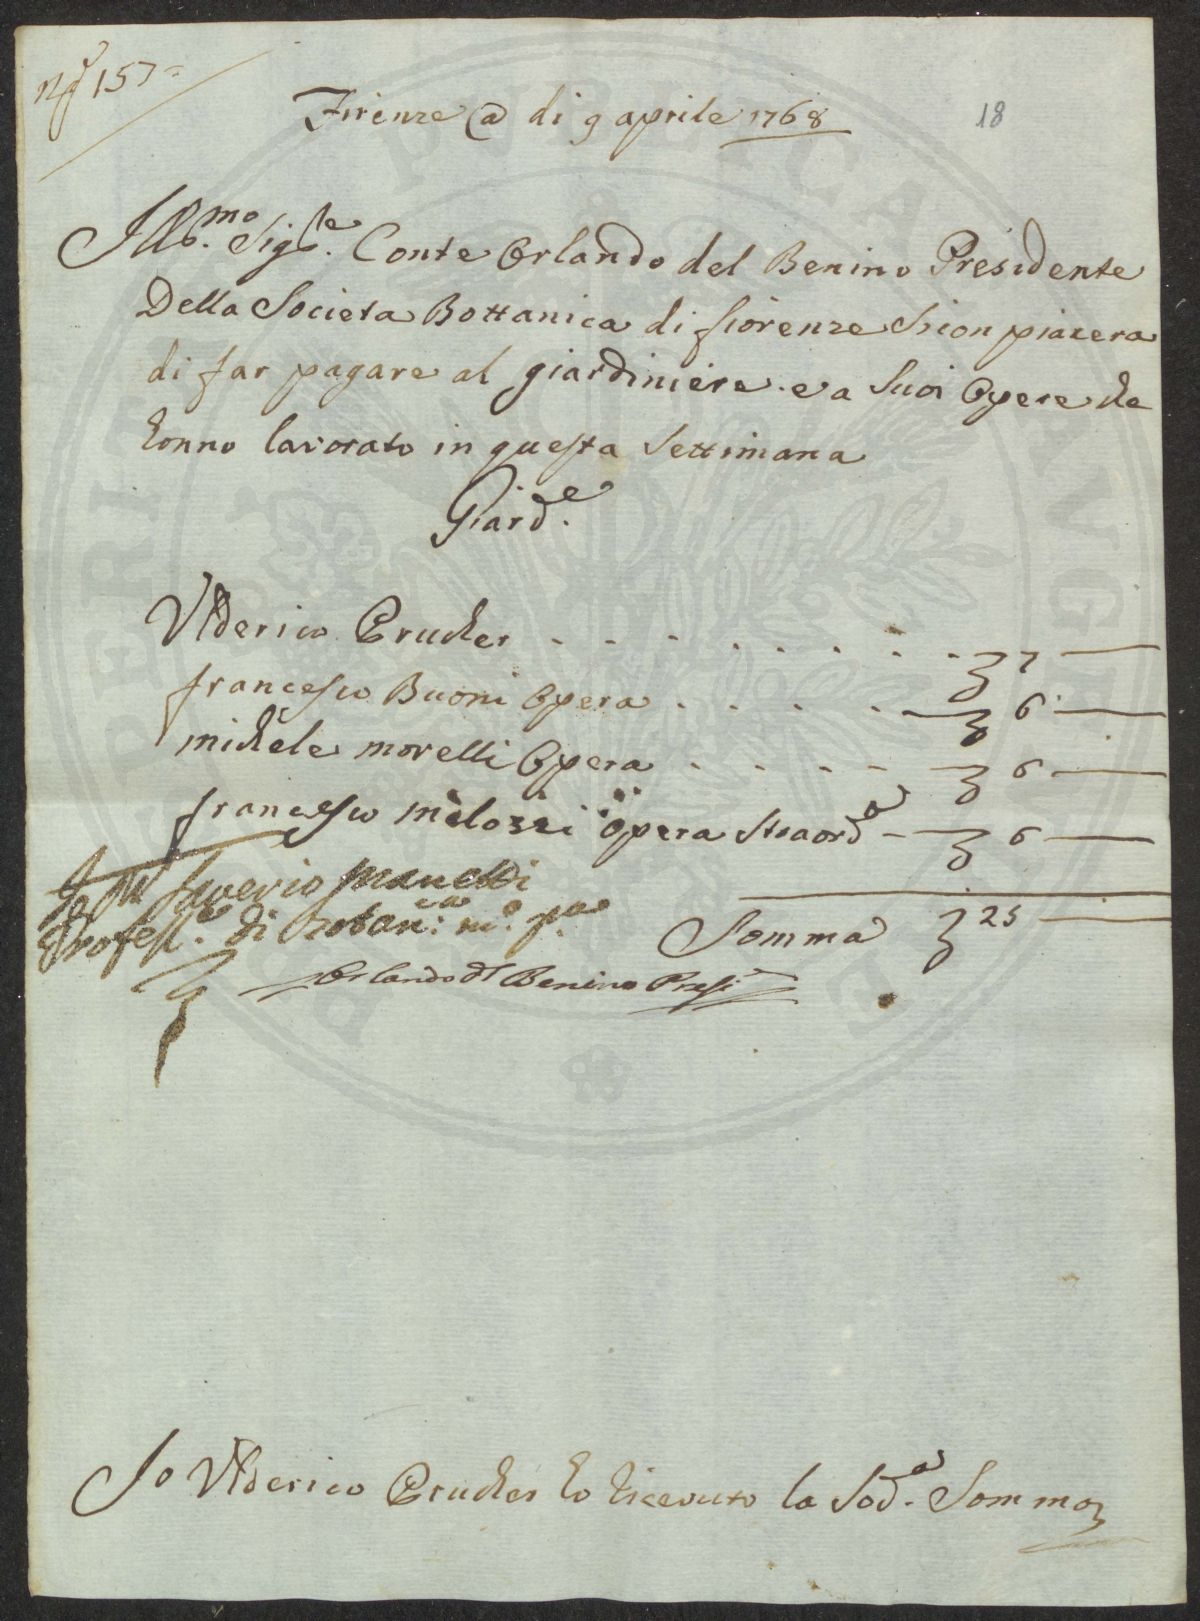 N.º 157
Firenze @ di 9 aprile 1768
18
Ill.mo Sig.re Conte Orlando del Benino Presidente
Della Societa Bottanica di fiorenze si con piacera
di far pagare al giardiniere e a suoi Opere che
honno lavorato in questa settimana
Giard.e
Vlderico Prucher . . . . . . . . 7
francesco Buoni Opera . . . . . 6
michele morelli Opera . . . . . 6
francesco melozzi opera straord.a 6
Saverio Manetti
Profess.e di Botan.ca m.o p.a
Somma 25
Orlando dl Benino Presi
Io Vlderico Prucher ho riceuuto la Sod.a Somma